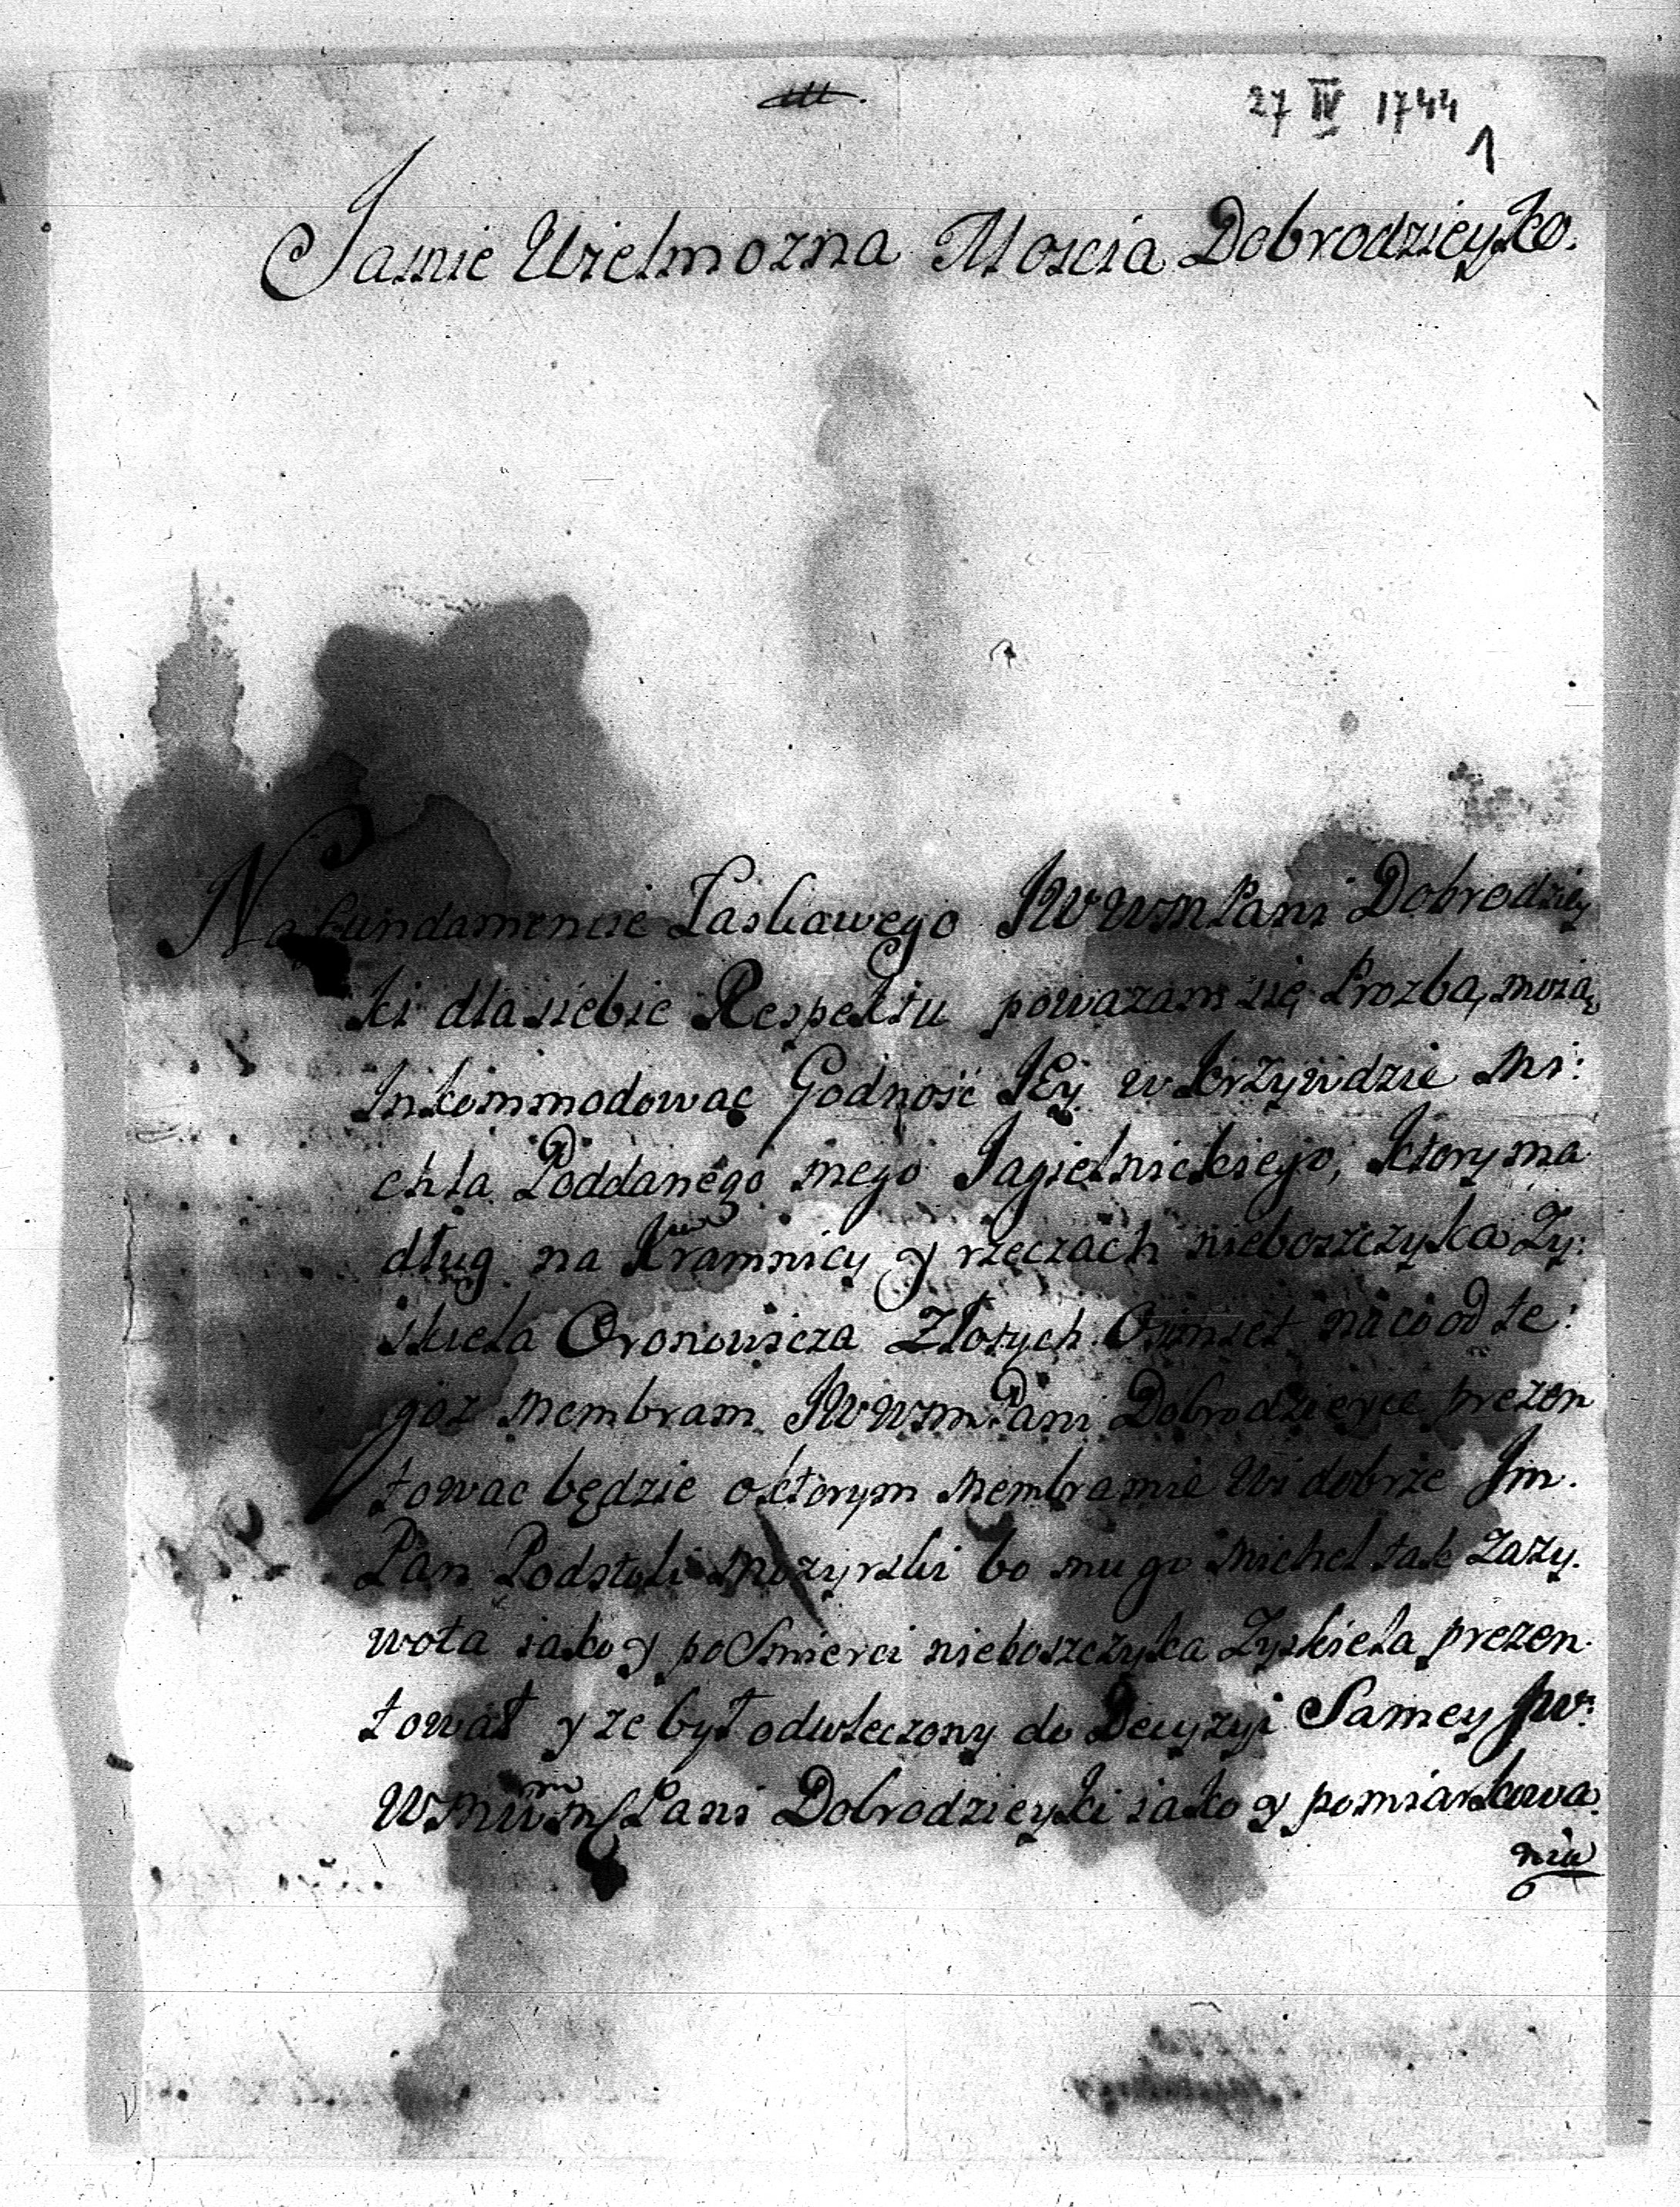 27 IV 1744
1
Jasnie Wielmozna Moscia Dobrodzieyko.
Na fundamencie Łaskawego JWWMPani Dobrodziey
ki dla siebie Respektu powazam się Prozbą moią
Inkommodowac Godność JEy w krzywdzie Mi:
chla Poddanego mego Jagielnickiego, ktory ma
dług na Kramnicy y rzeczach nieboszczyka Zy:
skiela Oronowicza Złotych Osmset na co od te:
goz Membram JWWMPani Dobrodzieyce prezen
towac będzie o ktorym Membramie Wi dobrze Jm.
Pan Podstoli Mozyrski bo mu go Michel tak za zy.
wota iako y po Smierci nieboszczyka Zyskiela prezen.
tował y ze był odwleczony do Decyzyi Samey JW:
WM Pani Dobrodzieyki iako y pomiarkowa.
nia